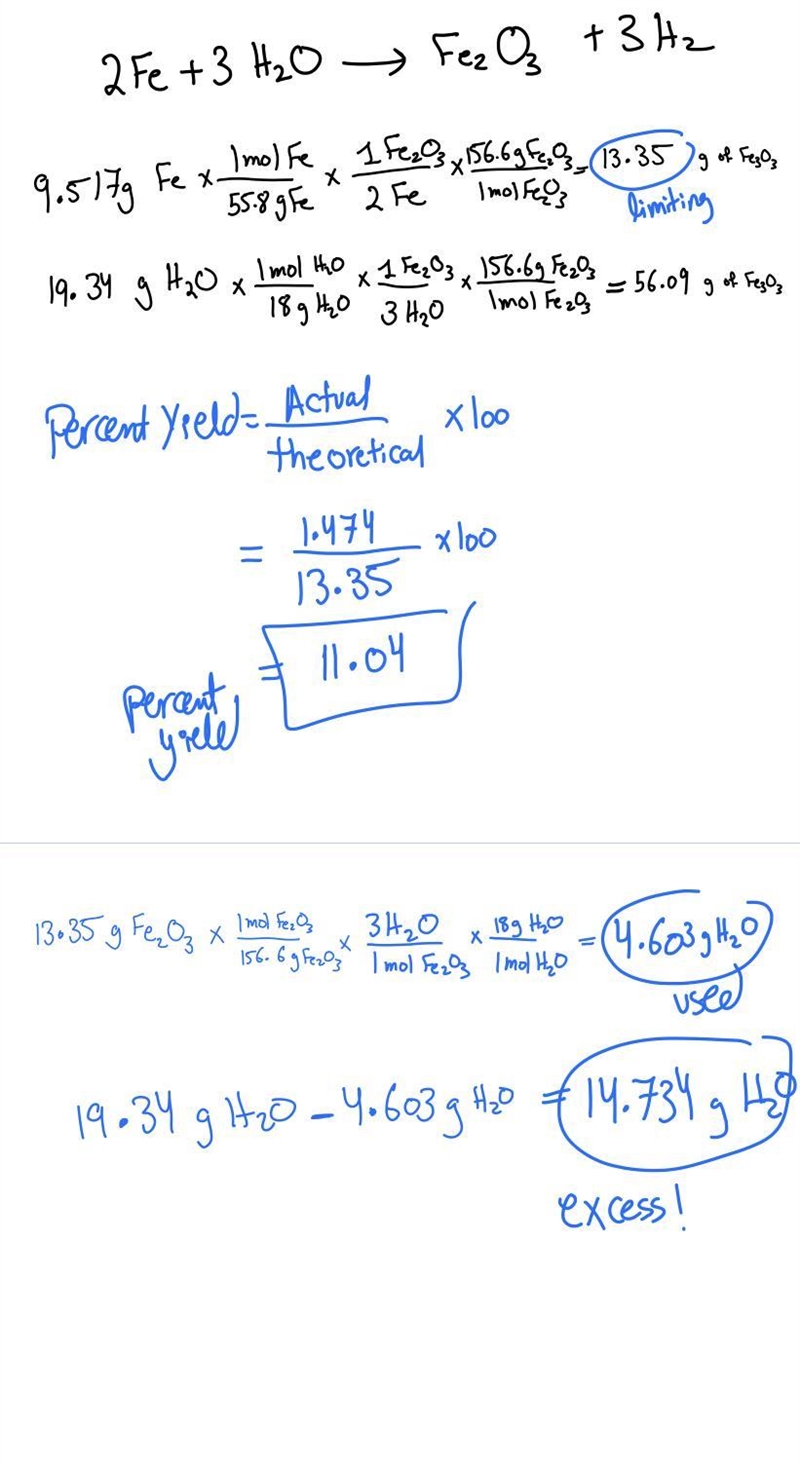 2Fe + 3 H₂O → Fe₂O₃ + 3H₂
9.517g Fe × 1mol Fe / 55.8 gFe × 1 Fe₂O₃ / 2 Fe × 156.6g Fe₂O₃ / 1mol Fe₂O₃ = 13.35 g of Fe₃O₃
limiting
19.34 g H₂O × 1mol H₂O / 18g H₂O × 1 Fe₂O₃ / 3 H₂O × 156.6g Fe₂O₃ / 1mol Fe₂O₃ = 56.09 g of Fe₃O₃
Percent Yield = Actual / theoretical × 100
= 1.474 / 13.35 × 100
= 11.04
Percent yield
13.35 g Fe₂O₃ × 1mol Fe₂O₃ / 156.6 g Fe₂O₃ × 3H₂O / 1mol Fe₂O₃ × 18g H₂O / 1mol H₂O = 4.603g H₂O
used
19.34 g H₂O – 4.603 g H₂O = 14.734 g H₂O
excess!